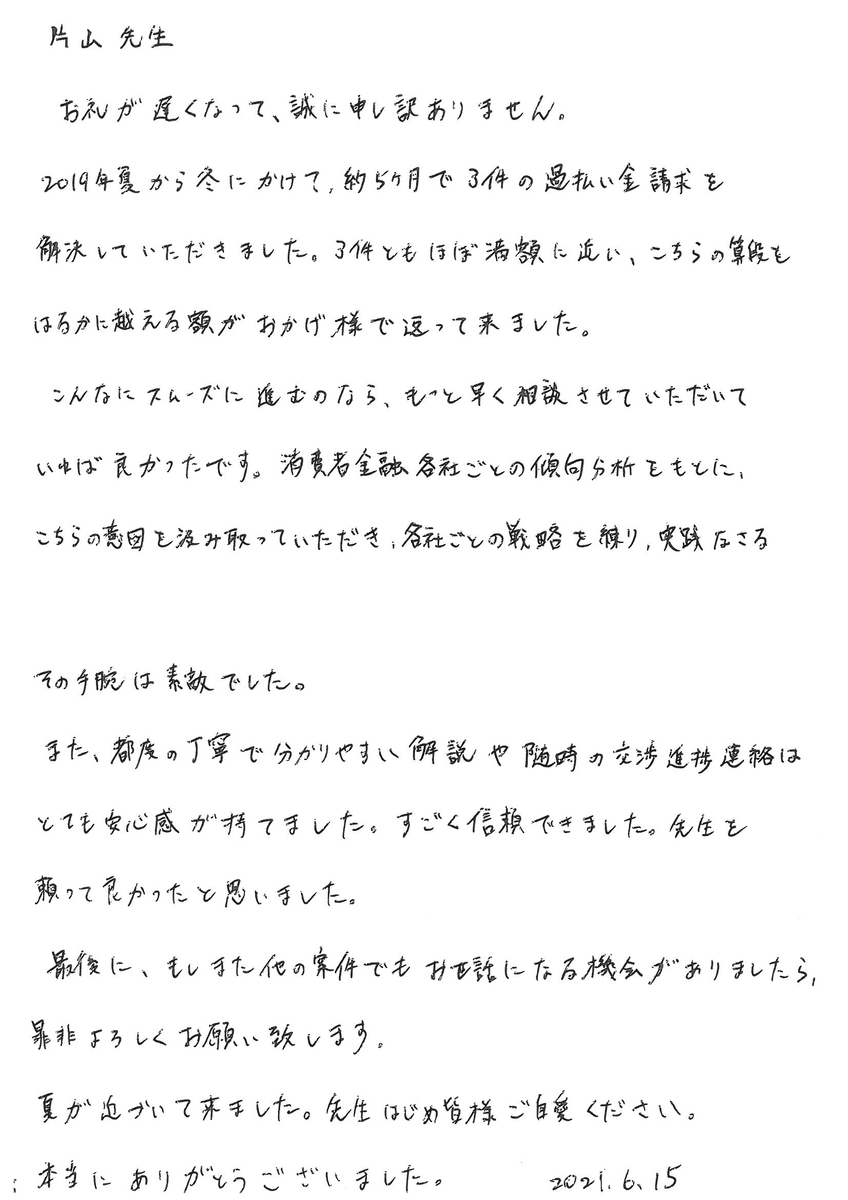 片山 先生
お礼が遅くなって、誠に申し訳ありません。
2019年夏から冬にかけて、約5ヶ月で3件の過払い金請求を
解決していただきました。3件ともほぼ満額に近い、こちらの算段を
はるかに越える額がおかげ様で返って来ました。
こんなにスムーズに進むのなら、もっと早く相談させていただいて
いれば良かったです。消費者金融各社ごとの傾向分析をもとに、
こちらの意図を汲み取っていただき、各社ごとの戦略を練り、実践なさる
その手腕は素敵でした。
また、都度の丁寧で分かりやすい解説や随時の交渉進捗連絡は
とても安心感が持てました。すごく信頼できました。先生を
頼って良かったと思いました。
最後に、もしまた他の案件でもお世話になる機会がありましたら、
是非よろしくお願い致します。
夏が近づいて来ました。先生はじめ皆様ご自愛ください。
本当にありがとうございました。 2021.6.15